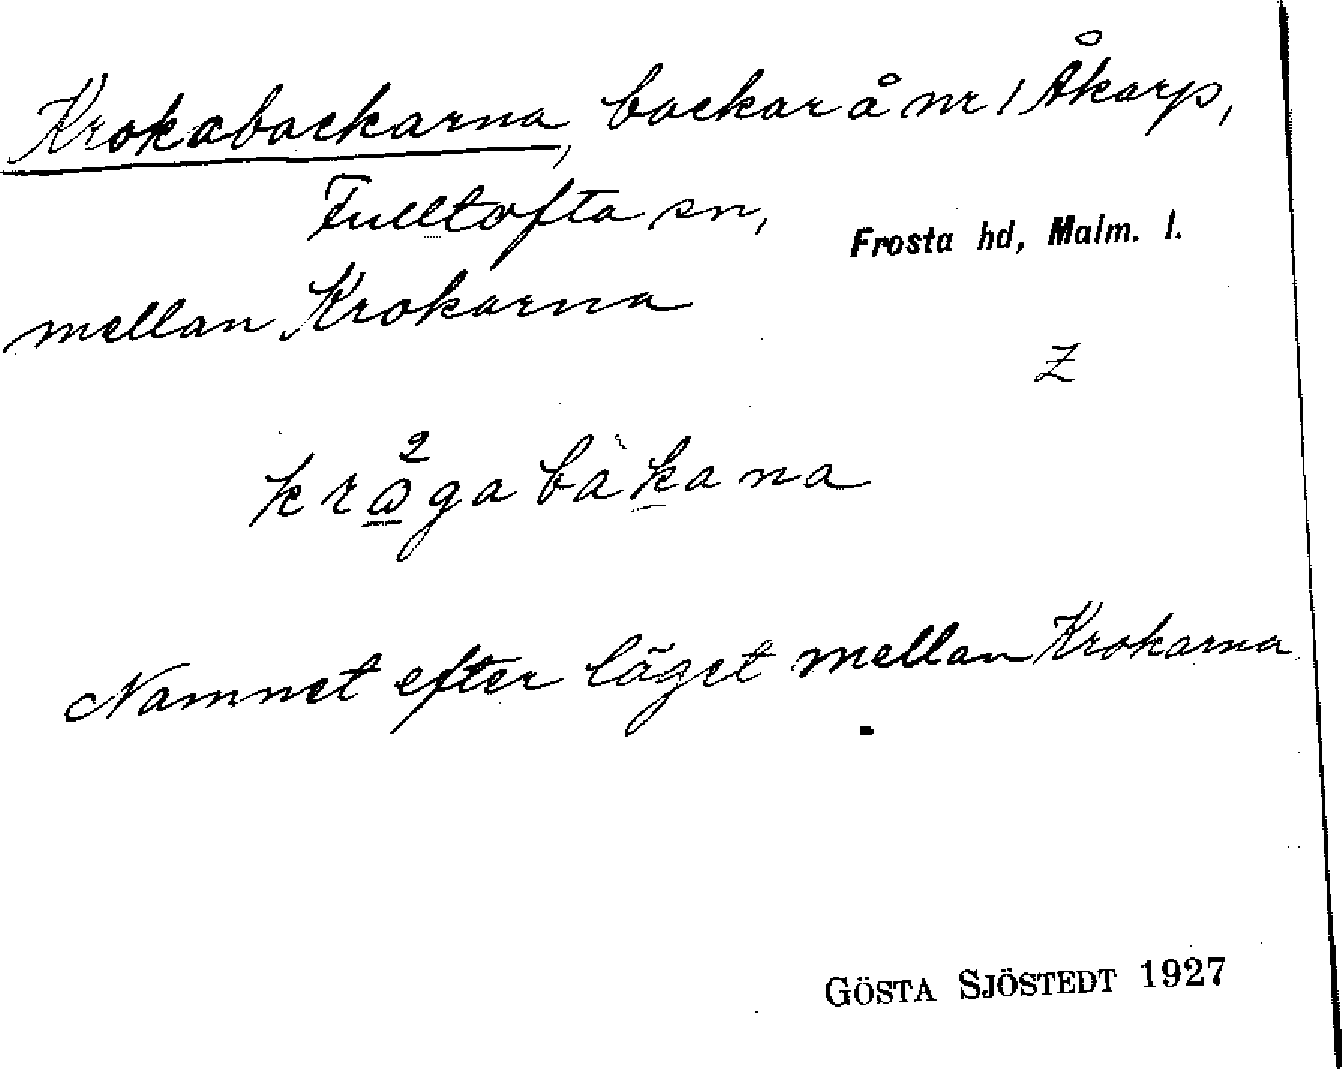 Krokabackarna, backar å nr 1 Åkarp,
Fulltofta sn, Frosta hd, Malm. l.
mellan Krokarna
Z
Namnet efter läget mellan Krokarna.
GÖSTA SJÖSTEDT 1927